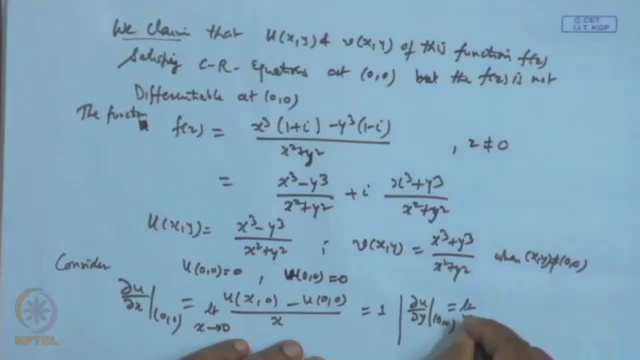 © CET
I.I.T. KGP
We claim that u(x,y) & v(x,y) of this function f(z)
Satisfying C-R- Equations at (0,0) but the f(z) is not
Differentiable at (0,0)
The funct
f(z) = x³(1+i) - y³(1-i) / x²+y² , z ≠ 0
= x³-y³ / x²+y² + i x³+y³ / x²+y²
u(x,y) = x³-y³ / x²+y² ; v(x,y) = x³+y³ / x²+y² when (x,y)≠(0,0)
Consider u(0,0)=0 , v(0,0)=0
∂u/∂x |(0,0) = lt x→0 u(x,0) - u(0,0) / x = 1 | ∂u/∂y |(0,0) = lt
NPTEL